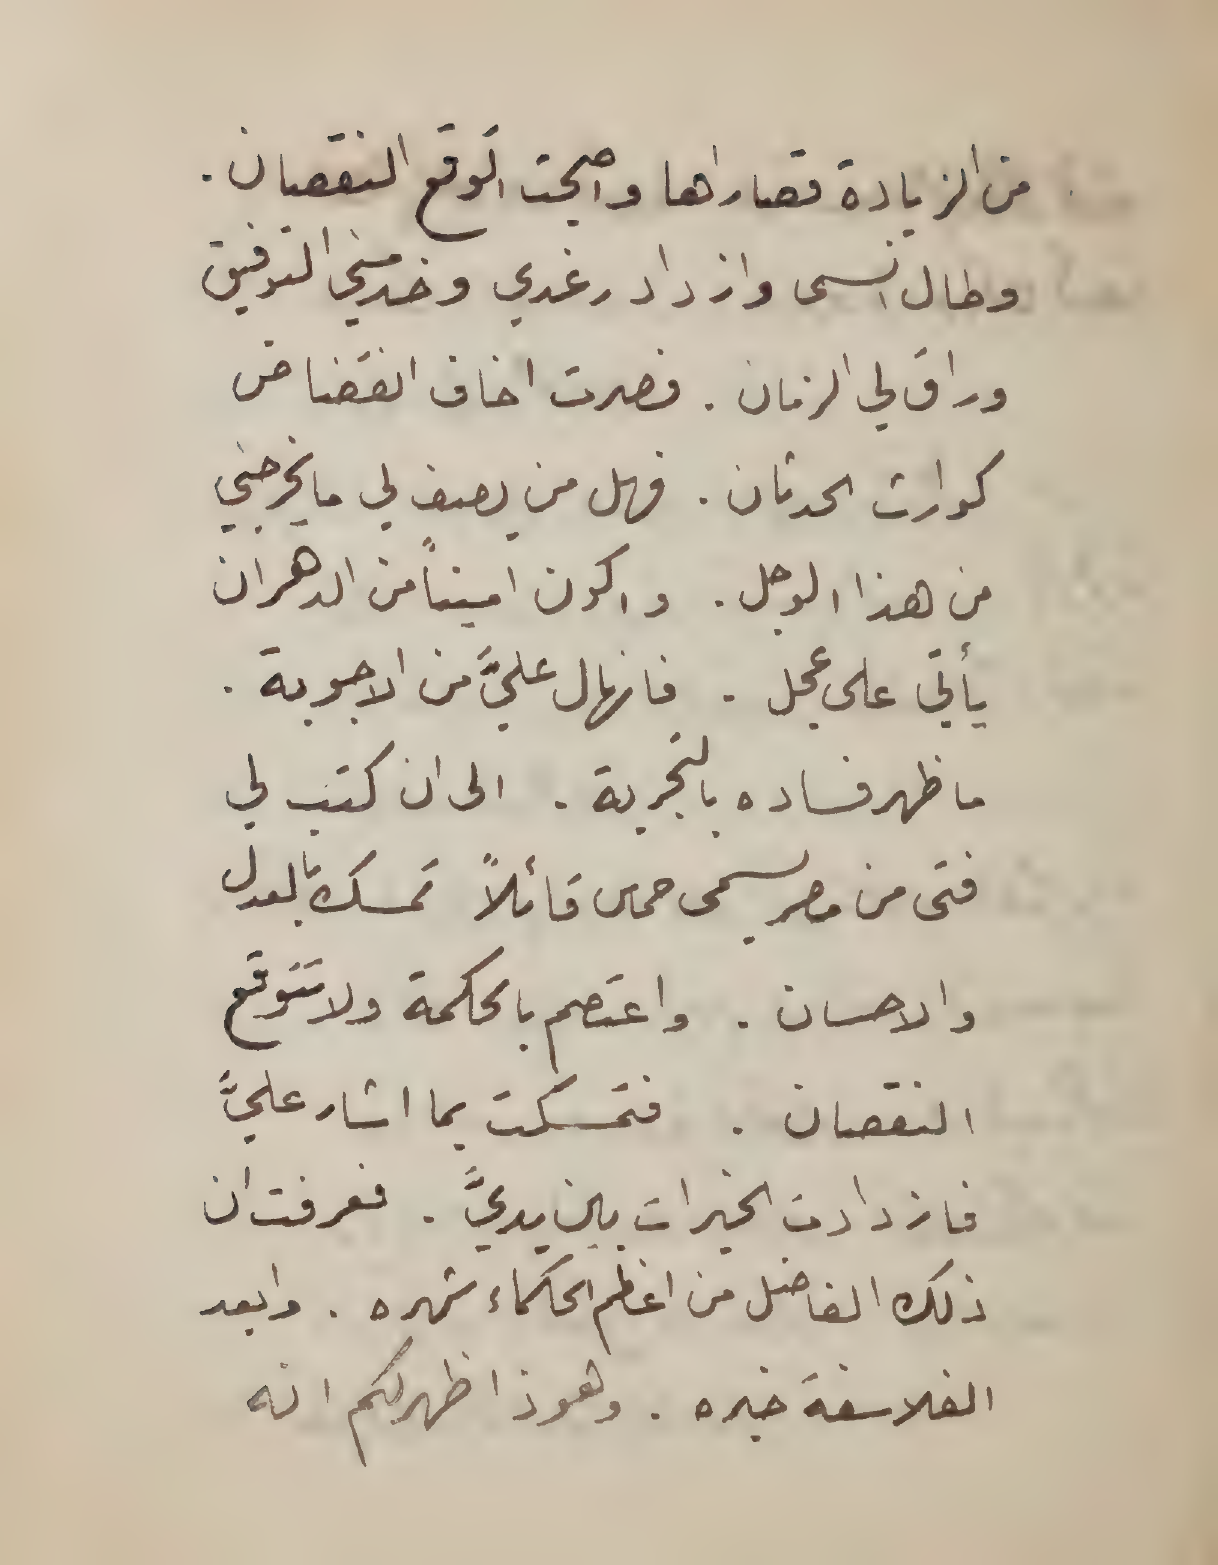 من الزيادة قصاراها واصبحت اتوقع النقصان .
وطال انسى وازداد رغدي وخدمني التوفيق
وراق لي الزمان . فصرت اخاف انقضاض
كوارث الحدثان . فهل من يصف لي ما يخرجني
من هذا الوجل . واكون اميناً من الدهر ان
يأتي على عجل . فانهال عليَّ من الاجوبة .
ما ظهر فساده بالتجربة . الى ان كتب لي
فتى من مصر يسمى حماس قائلاً تمسك بالعدل
والاحسان . واعتصم بالحكمة ولا تتوقع
النقصان . فتمسكت بما اشار عليَّ
فازدادت الخيرات بين يديَّ . فعرفت ان
ذلك الفاضل من اعظم الحكماء شهره . وابعد
الفلاسفة خبره . وهوذا ظهر لكم انه